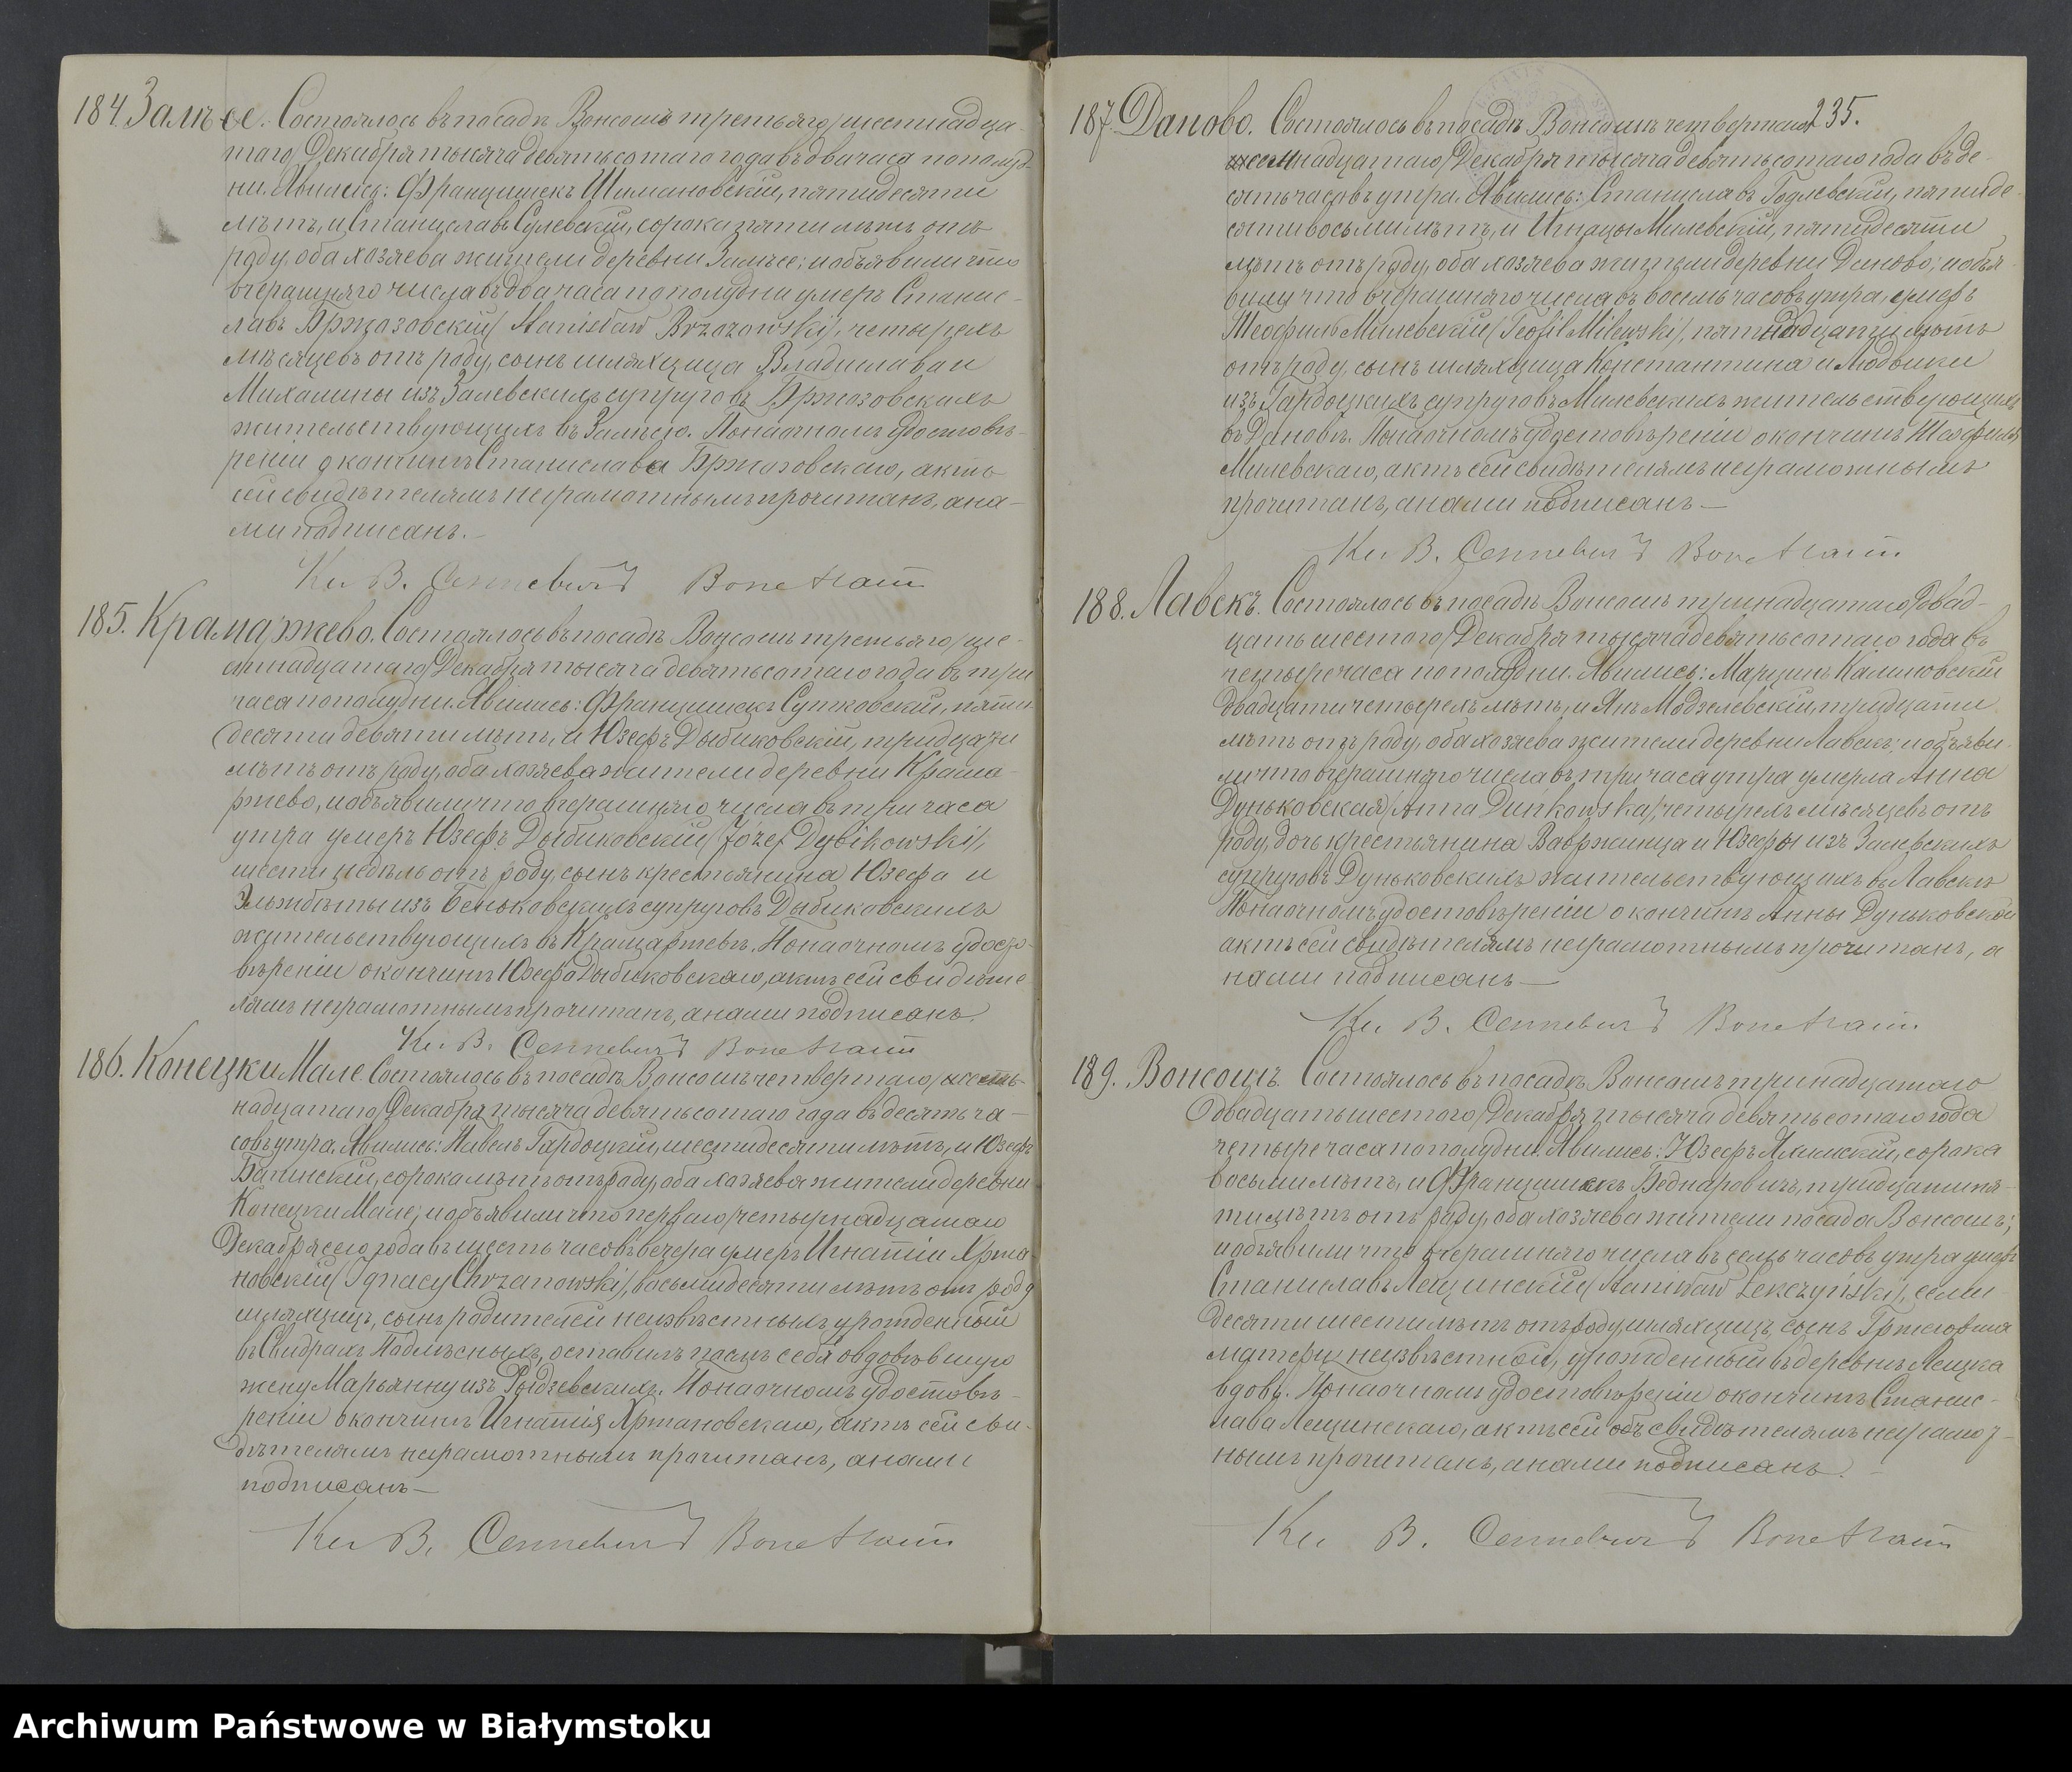 184. Залѣсе. Состоялось въ посадѣ Вонсошъ третьяго/шестнадца-
таго/Декабря тысяча девятьсотаго года въ два часа пополуд-
ни. Явились: Францишекъ Шимановскій, пятидесяти
лѣтъ, и Станиславъ Сулевскій, сорока пяти лѣтъ отъ
роду, оба хозяева жители деревни Залѣсе; и объявили что
вчерашняго числа въ два часа пополудни умеръ Станис-
лавъ Бржозовскій/Stanisław Brzozowski/, четырехъ
мѣсяцевъ отъ роду, сынъ шляхцица Владислава и
Михалины изъ Залевскихъ супруговъ Бржозовскихъ
жительствующихъ въ Залѣсю. По наочномъ удостовѣ-
реніи о кончинѣ Станислава Бржозовскаго, актъ
сей свидѣтелямъ неграмотнымъ прочитанъ, а на-
ми подписанъ.-
Кс. В.
185. Крамаржево. Состоялось въ посадѣ Вонсошъ третьяго/ше-
стнадцатаго/Декабря тысяча девятьсотаго года въ три
часа пополудни. Явились: Францишекъ Сутковскій, пяти-
десяти девяти лѣтъ, и Юзефъ Дыбиковскій, тридцати
лѣтъ отъ роду, оба хозяева жители деревни Крама-
ржево, и объявили что вчерашняго числа въ три часа
утра умеръ Юзефъ Дыбиковскій/Józef Dybikowski/,
шести недѣль отъ роду, сынъ крестьянина Юзефа и
Эльжбеты изъ Беньковскихъ супруговъ Дыбиковскихъ
жительствующихъ въ Крамаржевѣ. По наочномъ удосто-
вѣреніи о кончинѣ Юзефа Дыбиковскаго, актъ сей свидѣте-
лямъ неграмотнымъ прочитанъ, а нами подписанъ.
Кс. В.
186. Конецки Мале. Состоялось въ посадѣ Вонсошъ четвертаго/сем-
надцатаго/Декабря тысяча девятьсотаго года въ десять ча-
совъ утра. Явились: Павелъ Гардоцкій, шестидесяти лѣтъ, и Юзефъ
сорока лѣтъ отъ роду, оба хозяева жители деревни
Конецки Мале; и объявили что перваго/четырнадцатаго
Декабря сего года въ шесть часовъ вечера умеръ Игнатій Хржа-
новскій/Ignacy Chrzanowski/, восьмидесяти лѣтъ отъ роду
шляхцицъ, сынъ родителей неизвѣстныхъ урожденный
въ Свидрахъ Подлѣсныхъ, оставилъ послѣ себя овдовѣвшую
жену Марьянну изъ Рыдзевскихъ. По наочномъ удостовѣ-
реніи о кончинѣ Игнатія Хржановскаго, актъ сей сви-
дѣтелямъ неграмотнымъ прочитанъ, а нами
подписанъ-
Кс. В.
235.
187. Даново. Состоялось въ посадѣ Вонсошъ четвертаго/
семнадцатаго/Декабря тысяча девятьсотаго года въ де-
сять часовъ утра. Явились: Станиславъ Годлевскій, пятиде-
сяти восьми лѣтъ, и Игнацы Милевскій, пятидесяти
лѣтъ отъ роду, оба хозяева жители деревни Даново; и объя-
вили что вчерашняго числа въ восемь часовъ утра, умеръ
Теофилъ Милевскій/Teofil Milewski/, пятнадцати лѣтъ
отъ роду, сынъ шляхцица Константина и Людвики
изъ Гардоцкихъ супруговъ Милевскихъ жительствующихъ
въ Дановѣ. По наочномъ удостовѣреніи о кончинѣ Теофиля
Милевскаго, актъ сей свидѣтелямъ неграмотнымъ
прочитанъ, а нами подписанъ-
Кс. В.
188. Лавскъ. Состоялось въ посадѣ Вонсошъ тринадцатаго/двад-
цать шестого/Декабря тысяча девятьсотаго года въ
четыре часа пополудни. Явились: Марцинъ Калиновскій
двадцати четырехъ лѣтъ, и Янъ Модзелевскій, тридцати
лѣтъ отъ роду, оба хозяева жители деревни Лавскъ; и объяви-
ли что вчерашняго числа въ три часа утра умерла Анна
Дуньковская/Anna Duńkowska/, четырехъ мѣсяцевъ отъ
роду, дочь крестьянина Вавржинца и Юзефы изъ Залевскихъ
супруговъ Дуньковскихъ жительствующихъ въ Лавскѣ
По наочномъ удостовѣреніи о кончинѣ Анны Дуньковской
актъ сей свидѣтелямъ неграмотнымъ прочитанъ, а
нами подписанъ-
Кс. В.
189. Вонсошъ. Состоялось въ посадѣ Вонсошъ тринадцатаго
/двадцать шестого/Декабря тысяча девятьсотаго года
четыре часа пополудни. Явились: Юзефъ сорока
восьми лѣтъ, и Францишекъ Беднаровичъ, тридцати пя-
ти лѣтъ отъ роду, оба хозяева жители посада Вонсошъ;
и объявили что вчерашняго числа въ семь часовъ утра умеръ
Станиславъ Лещинскій/Stanisław семи-
десяти шести лѣтъ отъ роду, шляхцицъ, сынъ Гржегоржа
матери неизвѣстной, урожденный въ деревнѣ
вдовц. По наочномъ удостовѣреніи о кончинѣ Станис-
лава Лещинскаго, актъ сей объ свидѣтелямъ неграмот-
нымъ прочитанъ, а нами подписанъ.-
Кс. В.
Archiwum Państwowe w Białymstoku